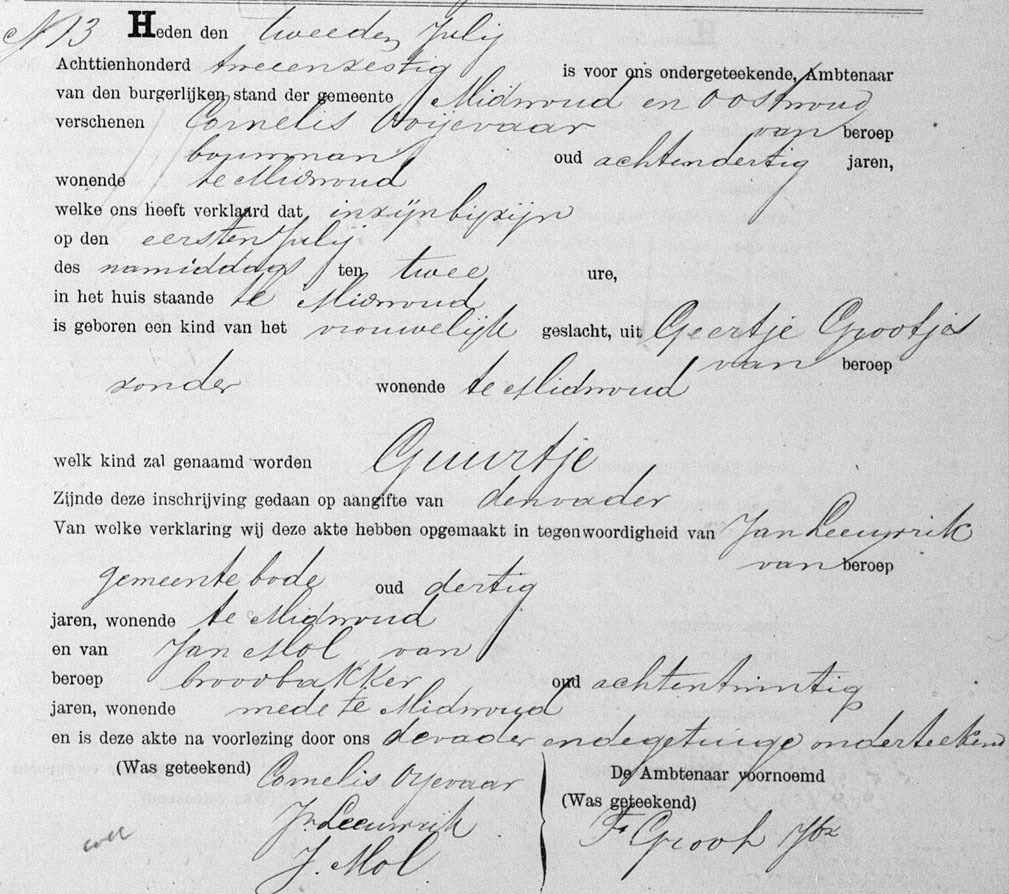 N 13 Heden den tweeden Julij
Achttienhonderd tweeenzestig is voor ons ondergeteekende, Ambtenaar
van den burgerlijken stand der gemeente Midwoud en Oostwoud
verschenen Cornelis Ooijevaar van beroep
bouwman oud achtendertig jaren,
wonende te Midwoud
welke ons heeft verklaard dat in zijn bijzijn
op den eersten Julij
des namiddags ten twee ure,
in het huis staande te Midwoud
is geboren een kind van het vrouwelijk geslacht, uit Geertje Grootjes
van beroep
zonder wonende te Midwoud
welk kind zal genaamd worden Guurtje
Zijnde deze inschrijving gedaan op aangifte van den vader
Van welke verklaring wij deze akte hebben opgemaakt in tegenwoordigheid van Jan Leeuwrik
van beroep
gemeentebode oud dertig
jaren, wonende te Midwoud
en van Jan Mol van
beroep broodbakker oud achtentwintig
jaren, wonende mede te Midwoud
en is deze akte na voorlezing door ons de vader en de getuige onderteekend
(Was geteekend) Cornelis Oijevaar De Ambtenaar voornoemd
(Was geteekend)
Jn Leeuwrik F Groot Jbz
J. Mol